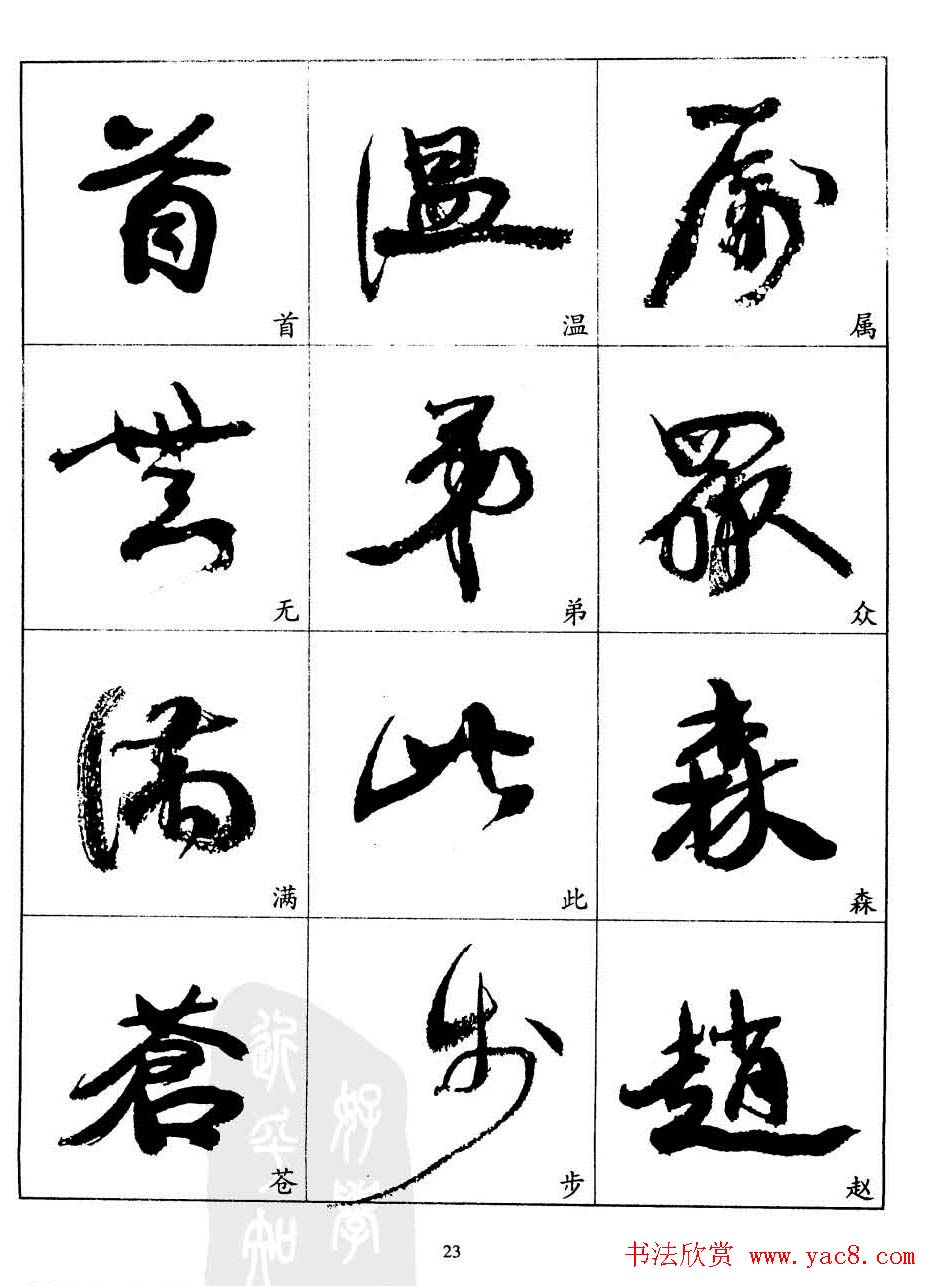 首 温 属
首 温 属
無 弟 眾
无 弟 众
满 此 森
满 此 森
蒼 步 趙
苍 步 赵
23
书法欣赏 www.yac8.com